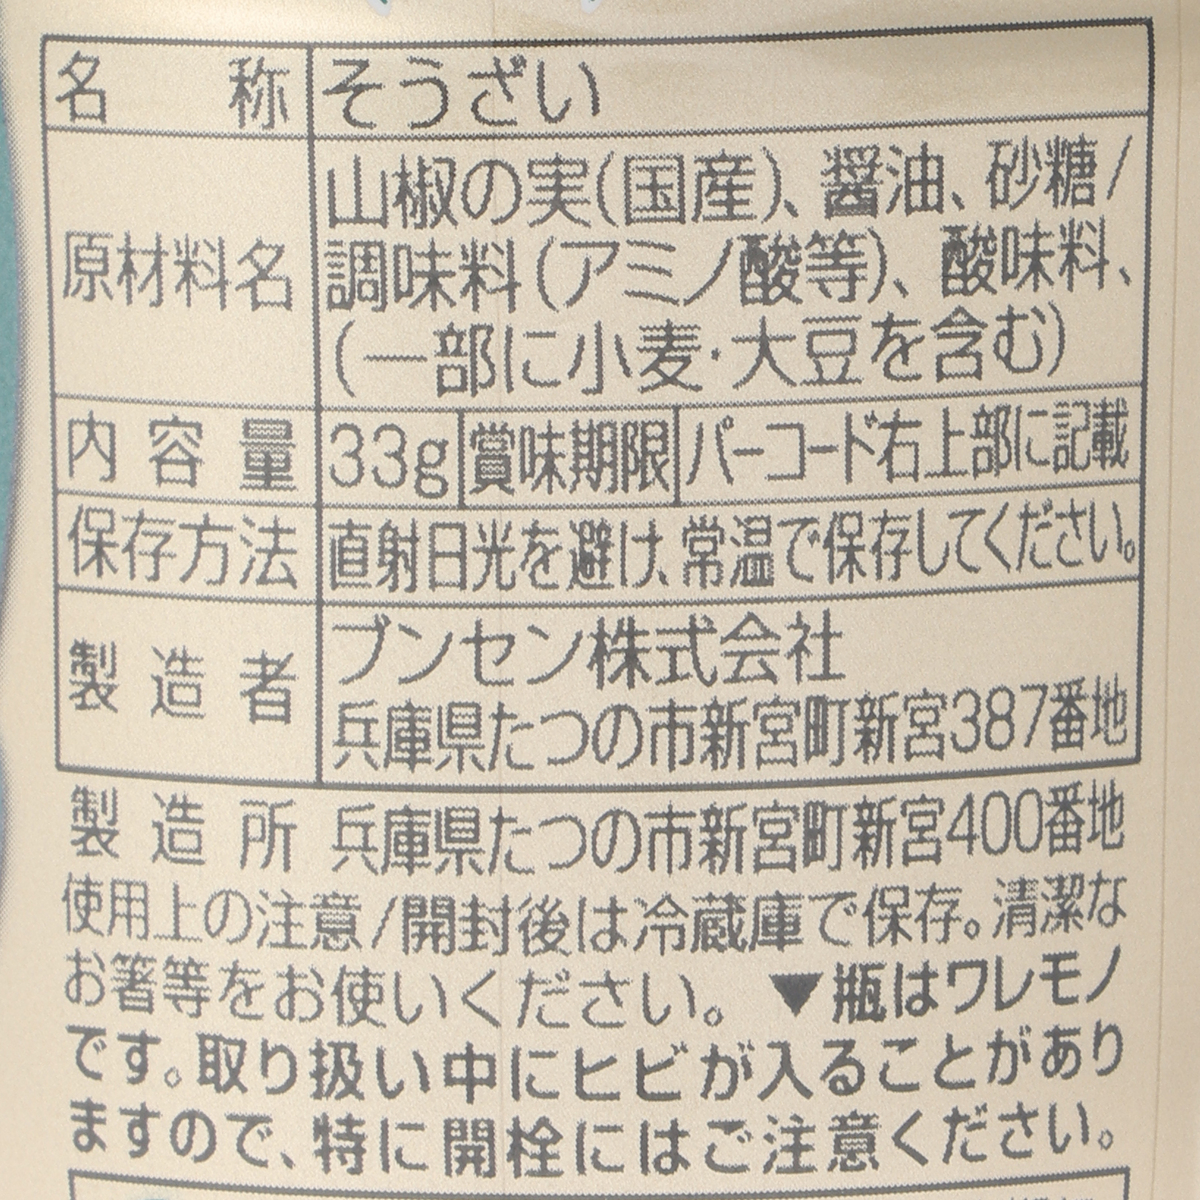 名称 そうざい
原材料名 山椒の実(国産)、醤油、砂糖/
調味料(アミノ酸等)、酸味料、
(一部に小麦・大豆を含む)
内容量 33g 賞味期限 バーコード右上部に記載
保存方法 直射日光を避け、常温で保存してください。
製造者 ブンセン株式会社
兵庫県たつの市新宮町新宮387番地
製造所 兵庫県たつの市新宮町新宮400番地
使用上の注意/開封後は冷蔵庫で保存。清潔な
お箸等をお使いください。▼瓶はワレモノ
です。取り扱い中にヒビが入ることがあり
ますので、特に開栓にはご注意ください。